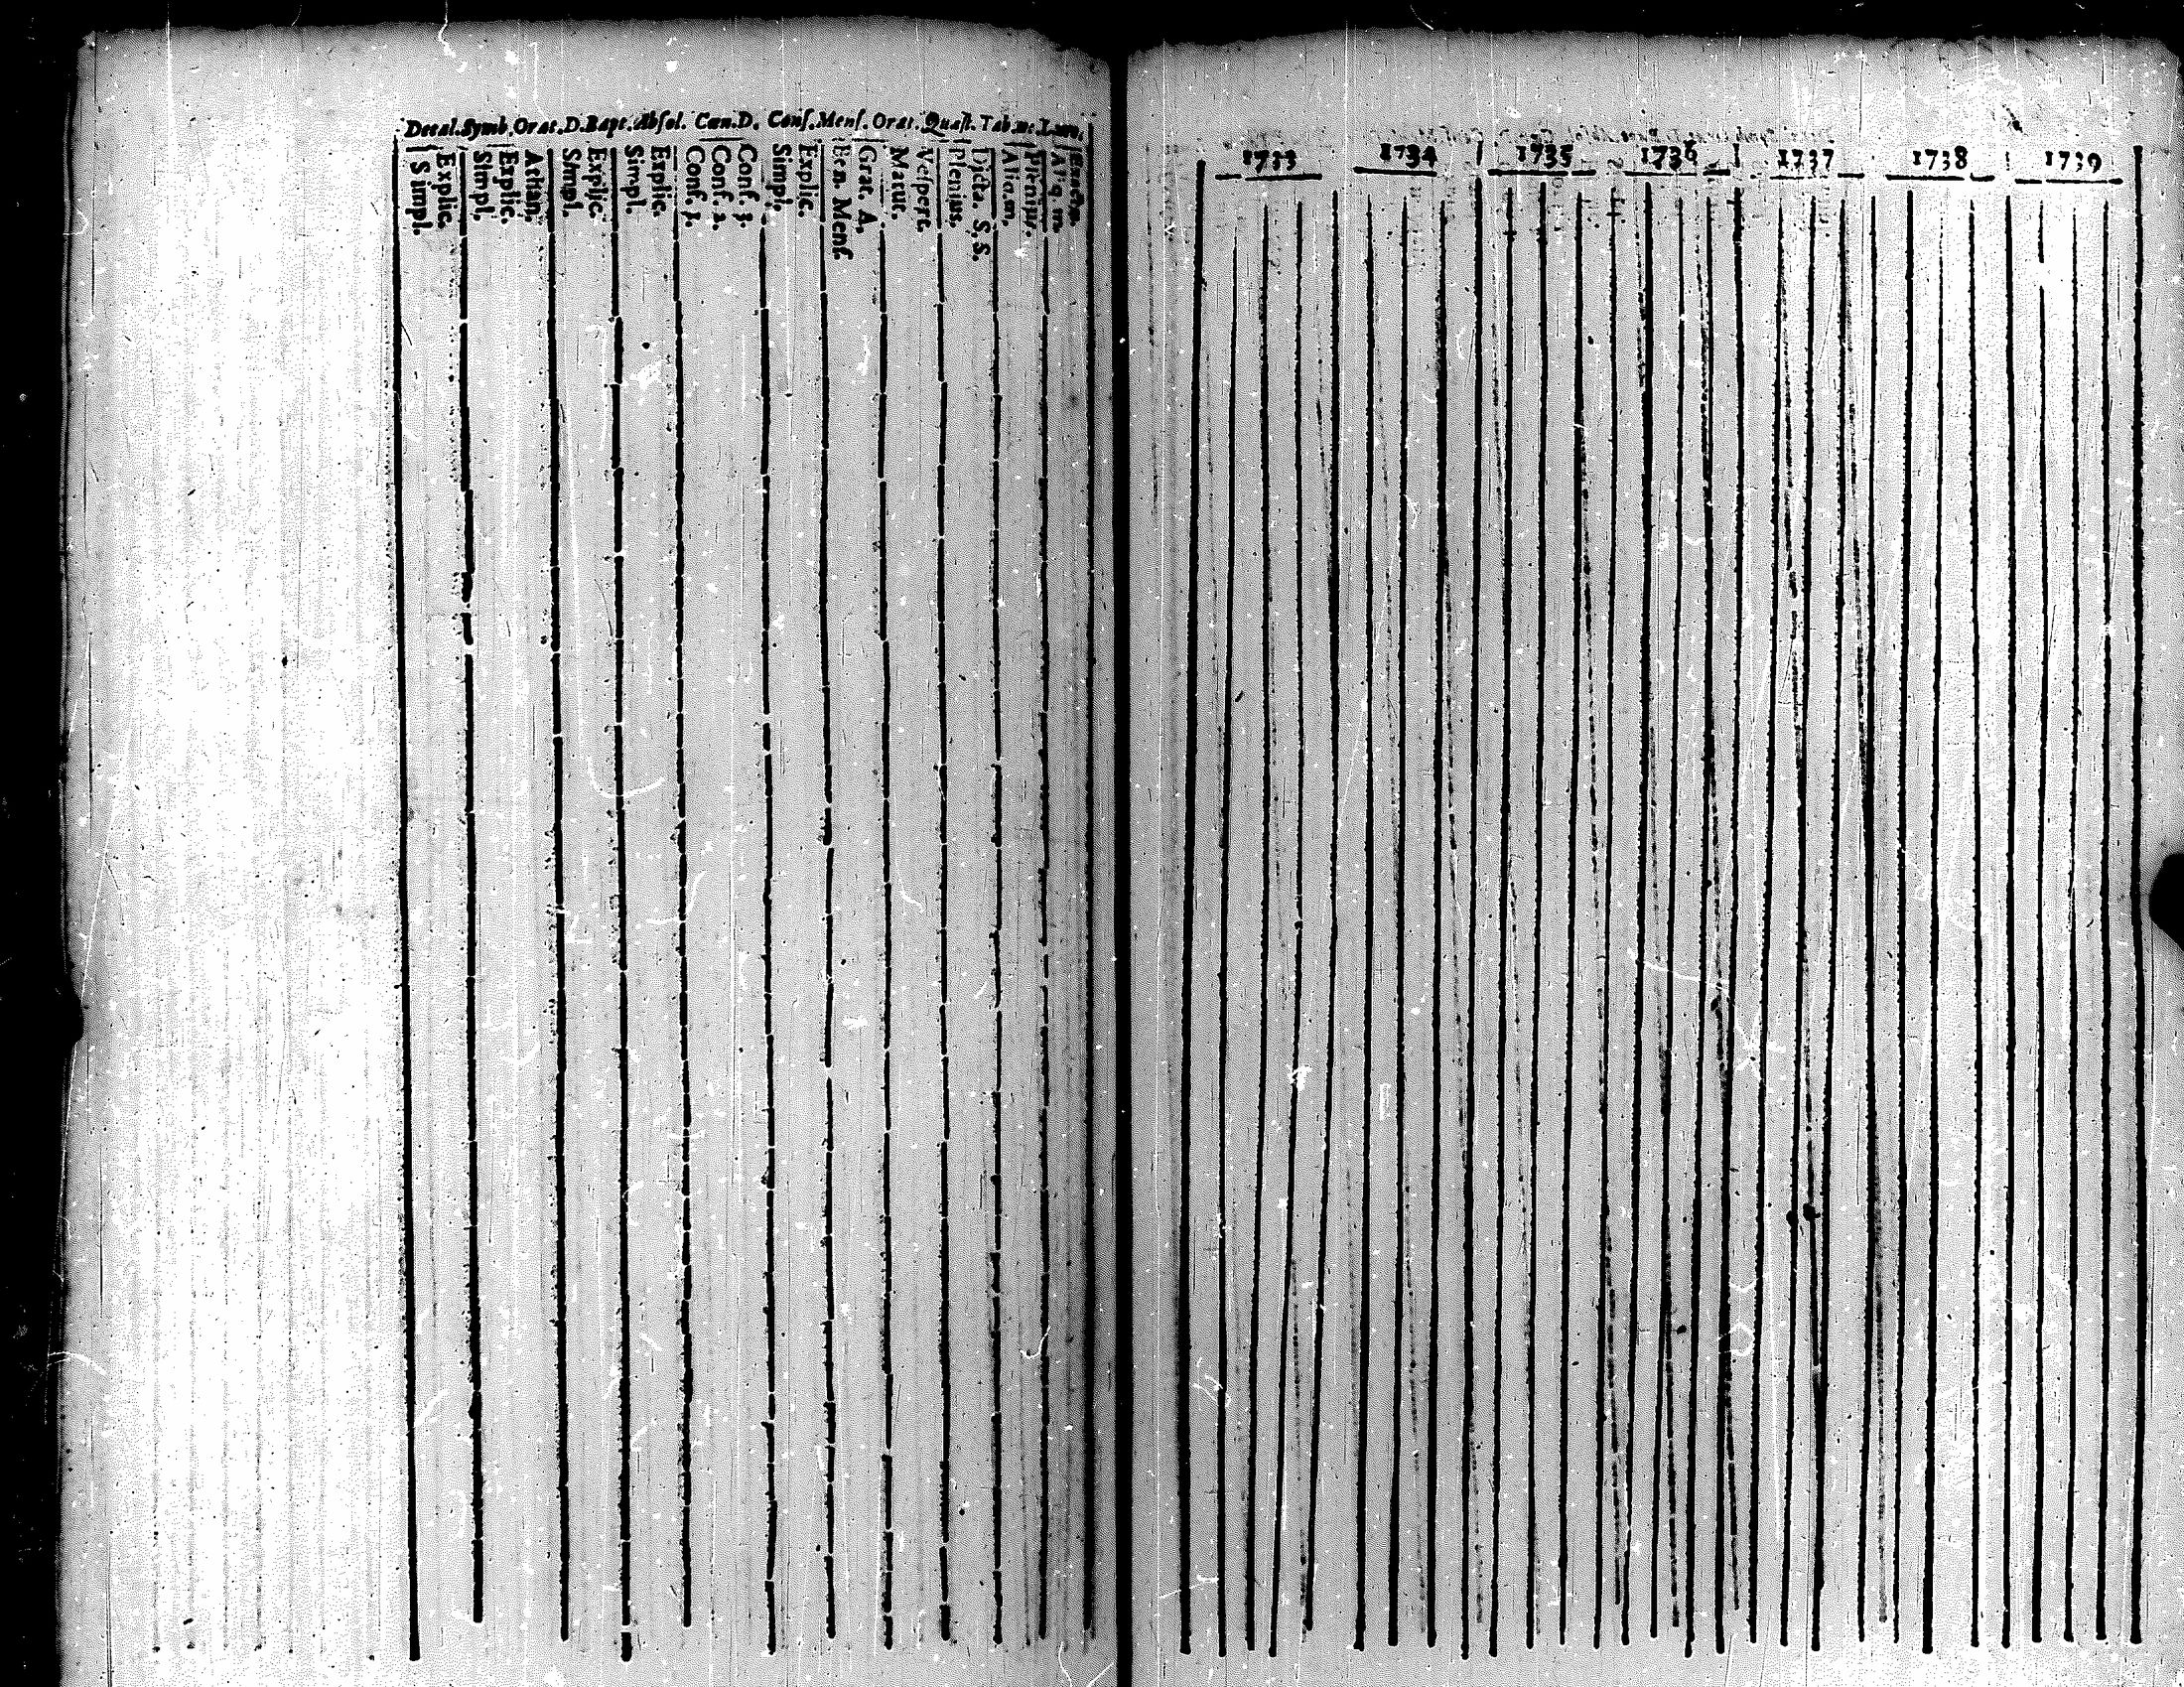 Decal. Symb. Orat. D. Bapt. Absol. Cœn. D. Conf. Menſ. Orat. Quæſt. Tab.
Simpl.
Explic.
Simpl.
Explic.
Athan.
Simpl.
Explic.
Simpl.
Explic.
Conf. 1.
Conf. 2.
Conf. 3.
Simpl.
Explic.
Ben. Menſ.
Grat. A.
Matut.
Veſpert.
Plenius.
Dicta. S. S.
Aliq. m.
Plenius.
Aliq. m.
1733 1734 1735 1736 1737 1738 1739